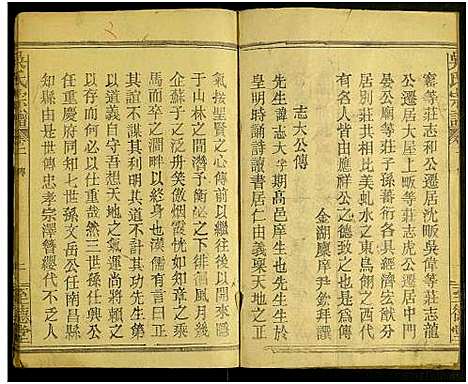 窰等莊志和公遷居沈畈吳偉等莊志龍
公遷居大屋上畈等莊志虎公遷居中門
晏公廟等莊子孫蕃衍各具經濟宏猷分
居別莊共相比美虬水之東鳥餬之西代
有各人皆由應祥公之貽也是為傳
金湖廩庠尹欽拜譔
志大公傳
先生諱志大字期高邑庠生也先生生於
皇明時誦詩讀書居仁由義稟天地之
氣接聖賢之心傳前以繼往後以開來隱
于山林之間棲遲于衡泌之下徘徊風月幾
企蘇于之泛舟笑傲烟霞恍如知章之乘
馬而卒之畊以終身也漢儒有言曰正
其誼不謀其利明道不計其功先生第
以道義自守吾想天地之氣運尚將藉之
以存而何必以仕重哉然三世孫仕興公
任重慶府同知七世孫文岳公任南昌縣
知縣由是世傳忠孝宗澤簪纓代不乏人
吳氏宗譜
卷一
傳
一
至德堂
吳氏宗譜
至德堂